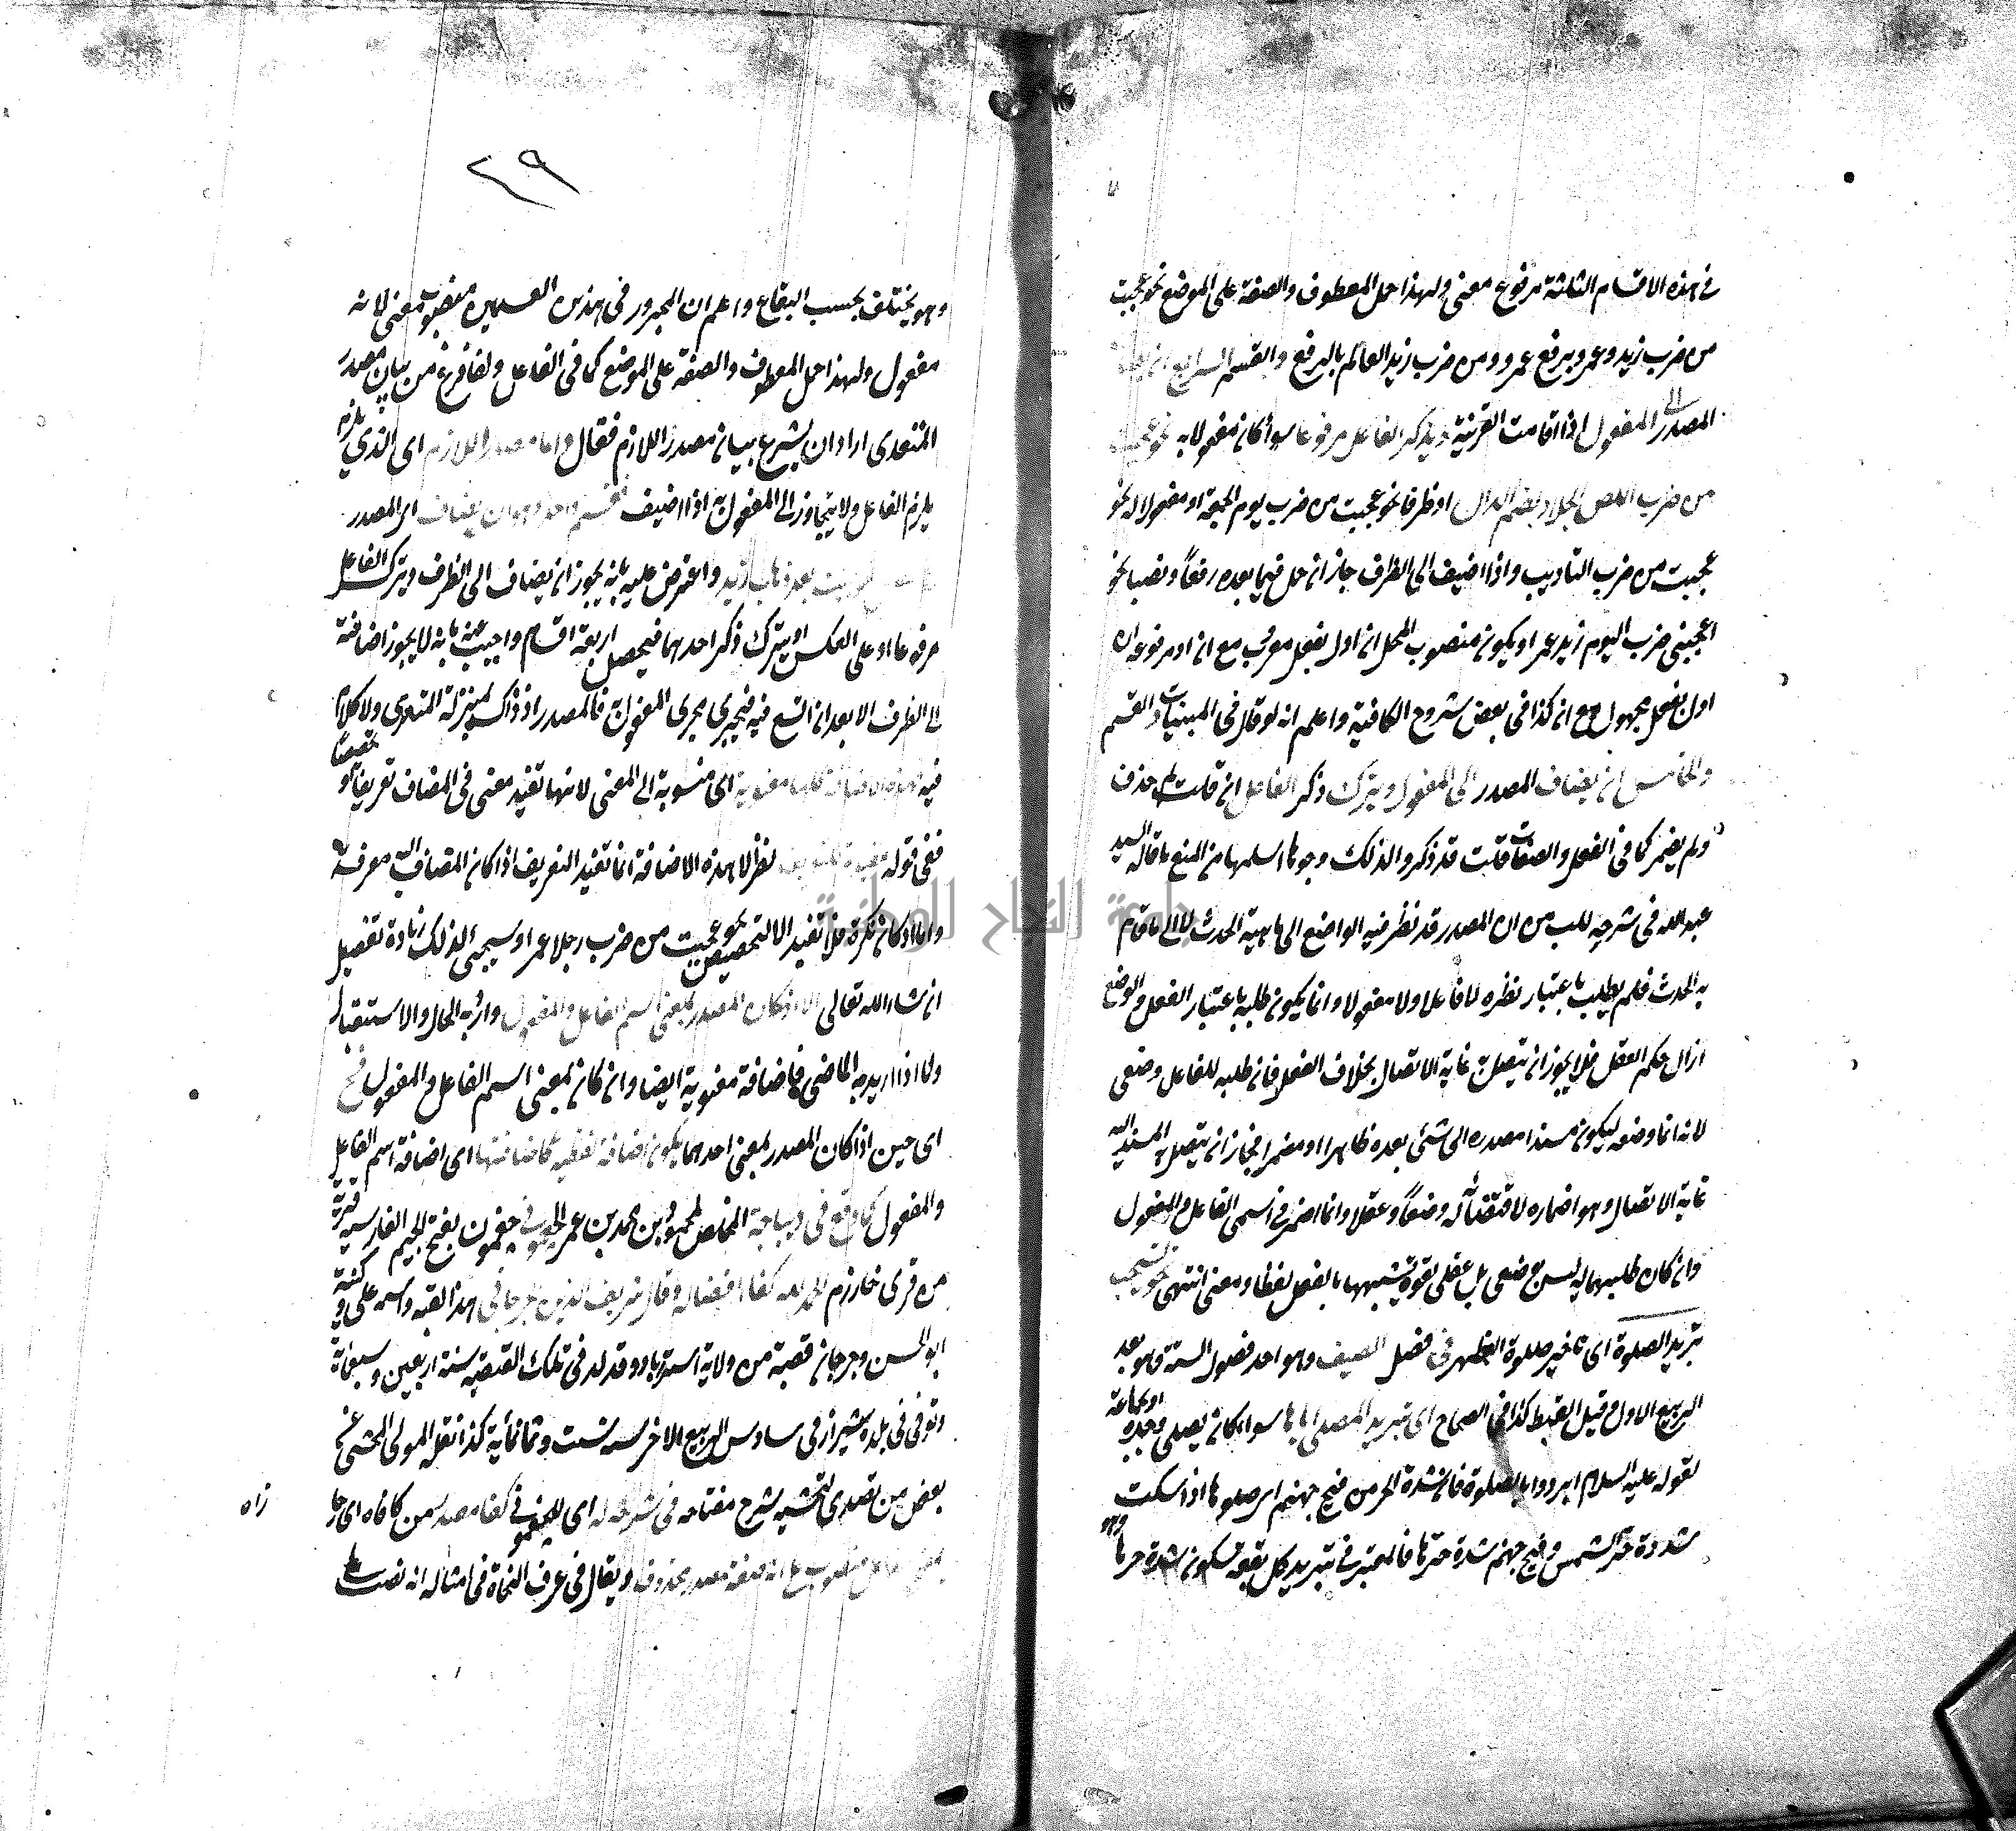 في هذه الاقسام الثلثة مرفوع معنى ولهذا حمل المعطوف والصفة على الموضع نحو عجبت
من ضرب زيد وعمرو برفع عمرو ومن ضرب زيد العالم بالرفع والقسم الرابع ان يضاف
المصدر الى المفعول اذا قامت القرينة ويذكر الفاعل مرفوعا سواء كان مفعولا به نحو عجبت
من ضرب اللص الجلاد بضم الدال او ظرفا نحو عجبت من ضرب يوم الجمعة او مفعولا له نحو
عجبت من ضرب التأديب واذا اضيف الى الظرف جاز ان حمل فيما بعده رفعاً ونصبا نحو
اعجبني ضرب اليوم زيد عمرا ويكون منصوب المحل ان اول بفعل معروف مع ان او مرفوعه ان
اول بفعل مجهول مع ان كذا في بعض شروح الكافية واعلم انه لو قال في المبنيات والقسم
والخامس ان يضاف المصدر الى المفعول ويترك ذكر الفاعل ان قلت لم حذف
ولم يضمر كما في الفعل والصفات قلت قد ذكروا لذلك وجوها اسلمها من المنع ما قاله السيد
عبد الله في شرحه للب من ان المصدر قد نظر فيه الواضع الى ماهية الحدث لا الى ما قام
به الحدث فلم يطلب باعتبار نظره لا فاعلا ولا مفعولا وانما يكون طلبه باعتبار الفعل والوضع
ازال حكم العقل فلا يجوز ان يتصل به غاية الاتصال بخلاف الفعل فان طلبه للفاعل وضعي
لانه انما وضعه ليكون مسندا مصدره الى شئ بعده ظاهرا او مضمرا فجاز ان يتصل به المسند اليه
غاية الاتصال وهو اضماره لاقتضائه له وضعاً وعقلا وانما اضمر في اسمي الفاعل والمفعول
وان كان طلبهما له ليس بوضعي بل عقلي لقوة تشبيهها بالفعل لفظا ومعنى انتهى نحو يستحب
تبريد الصلوة اى تاخير صلوة الظهر في فصل الصيف وهو احد فصول السنة وهو بعد
الربيع الاول وقبل القيظ كذا في الصحاح اى تبريد المصلي اياها سواء كان يصلي وحده او بجماعة
لقوله عليه السلام ابردوا بالصلوة فان شدة الحر من فيح جهنم اى صلوها اذا سكت
شدة حر الشمس وفيح جهنم شدة حرها فالمعتبر في تبريد كل بقعة سكون شدة حرها وهو
٢٩
وهو يختلف بحسب البقاع واعلم ان المجرور في هذين القسمين منصوب معنى لانه
مفعول ولهذا حمل المعطوف والصفة على الموضع كما في الفاعل ولما فرغ من بيان مصدر
المتعدى اراد ان يشرع ببيان مصدر اللازم فقال واما مصدر اللازم اى الذي يلزم
يلزم الفاعل ولا يتجاوز الى المفعول به اذا اضيف فقسم واحد وهو ان يضاف اى المصدر
بعد ذهاب زيد واعترض عليه بانه يجوز ان يضاف الى الظرف ويترك الفاعل
مرفوعا او على العكس او يترك ذكر احدهما فيحصل اربعة اقسام واجيب عنه بانه لا يجوز اضافته
الى الظرف الا بعد ان اتسع فيه فيجري مجرى المفعول به فالمصدر اذ ذاك بمنزلة المتعدي ولا كلام
فيه وهذه الاضافة كلها معنوية اى منسوبة الى المعنى لانها تفيد معنى في المضاف تعريفا او تخصيصا
ففي قوله مفيدة للتعريف نظر لان هذه الاضافة انما تفيد التعريف اذا كان المضاف اليه معرفة
واما اذا كان نكرة فلا تفيد الا التخصيص نحو عجبت من ضرب رجل عمرا وسيجئ لذلك زيادة تفصيل
ان شاء الله تعالى الا اذا كان المصدر بمعنى اسم الفاعل والمفعول واريد به الحال والاستقبال
واما اذا اريد به الماضي فاضافته معنوية ايضا وان كان بمعنى اسم الفاعل والمفعول فح
اى حين اذا كان المصدر بمعنى احدهما يكون اضافة لفظية كاضافتها اى اضافة اسم الفاعل
والمفعول كما وقع في ديباجة الملخص لمحمود بن محمد بن عمر الجغميني جغمون بفتح الجيم الفارسية قرية
من قرى خارزم الحمد لله كفاء افضاله وقال شريف الدين الجرجاني هذا لقبه واسمه علي وكنيته
ابو الحسن وجرجان قصبة من ولاية استرباد وقد ولد في تلك القصبة سنة اربعين وسبعمائة
وتوفى في بلدة شيراز في سادس الربيع الاخر سنة ست وثمانمائة كذا نقل المولى المحشي عن
بعض من تصدى لتحشيه شرح مفتاحه في شرحه له اى للجغميني كفاء مصدر من كافاه اى جازاه
منصوب على انه صفة مصدر محذوف ويقال في عرف النحاة في امثاله انه نصب على